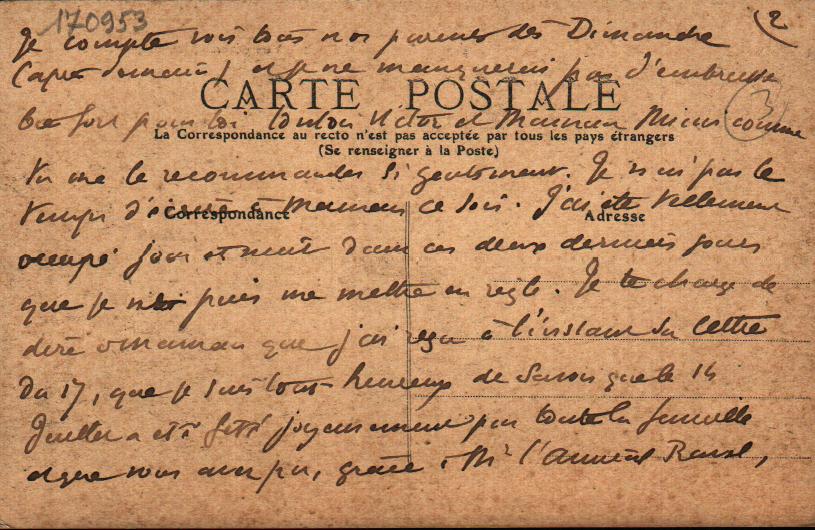 170953
2
Je compte voir tous nos parents dès Dimanche
(après demain) et je ne manquerai pas d'embrasser
CARTE POSTALE
3
bien fort pour toi tonton Victor et Maman comme
La Correspondance au recto n'est pas acceptée par tous les pays étrangers
(Se renseigner à la Poste)
tu me le recommandes si gentiment. Je n'ai pas le
temps d'écrire à Maman ce soir. J'ai été tellement
Correspondance
Adresse
occupé jour et nuit dans ces deux derniers jours
que je ne puis me mettre en règle. Je te charge de
dire à maman que j'ai reçu à l'instant sa lettre
du 17, que je suis tout heureux de savoir que le 14
Juillet a été fêté joyeusement par toute la famille
et que vous avez pu, grâce à Mr l'Amiral